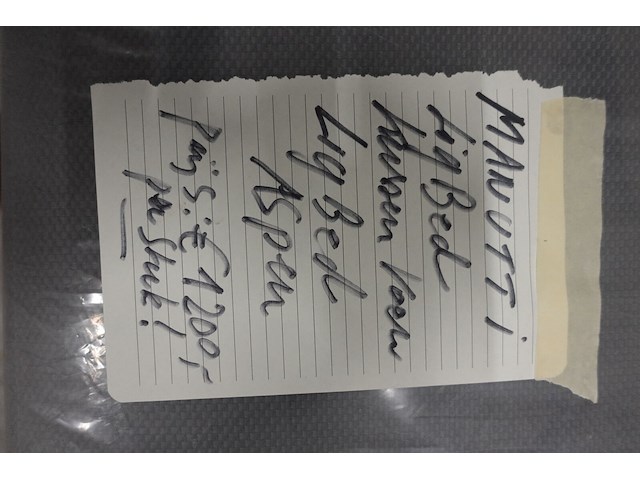 MANUTTI
LigBed
Kussen
LigBed
Aspen
Prijs: € 1200,-
per stuk!